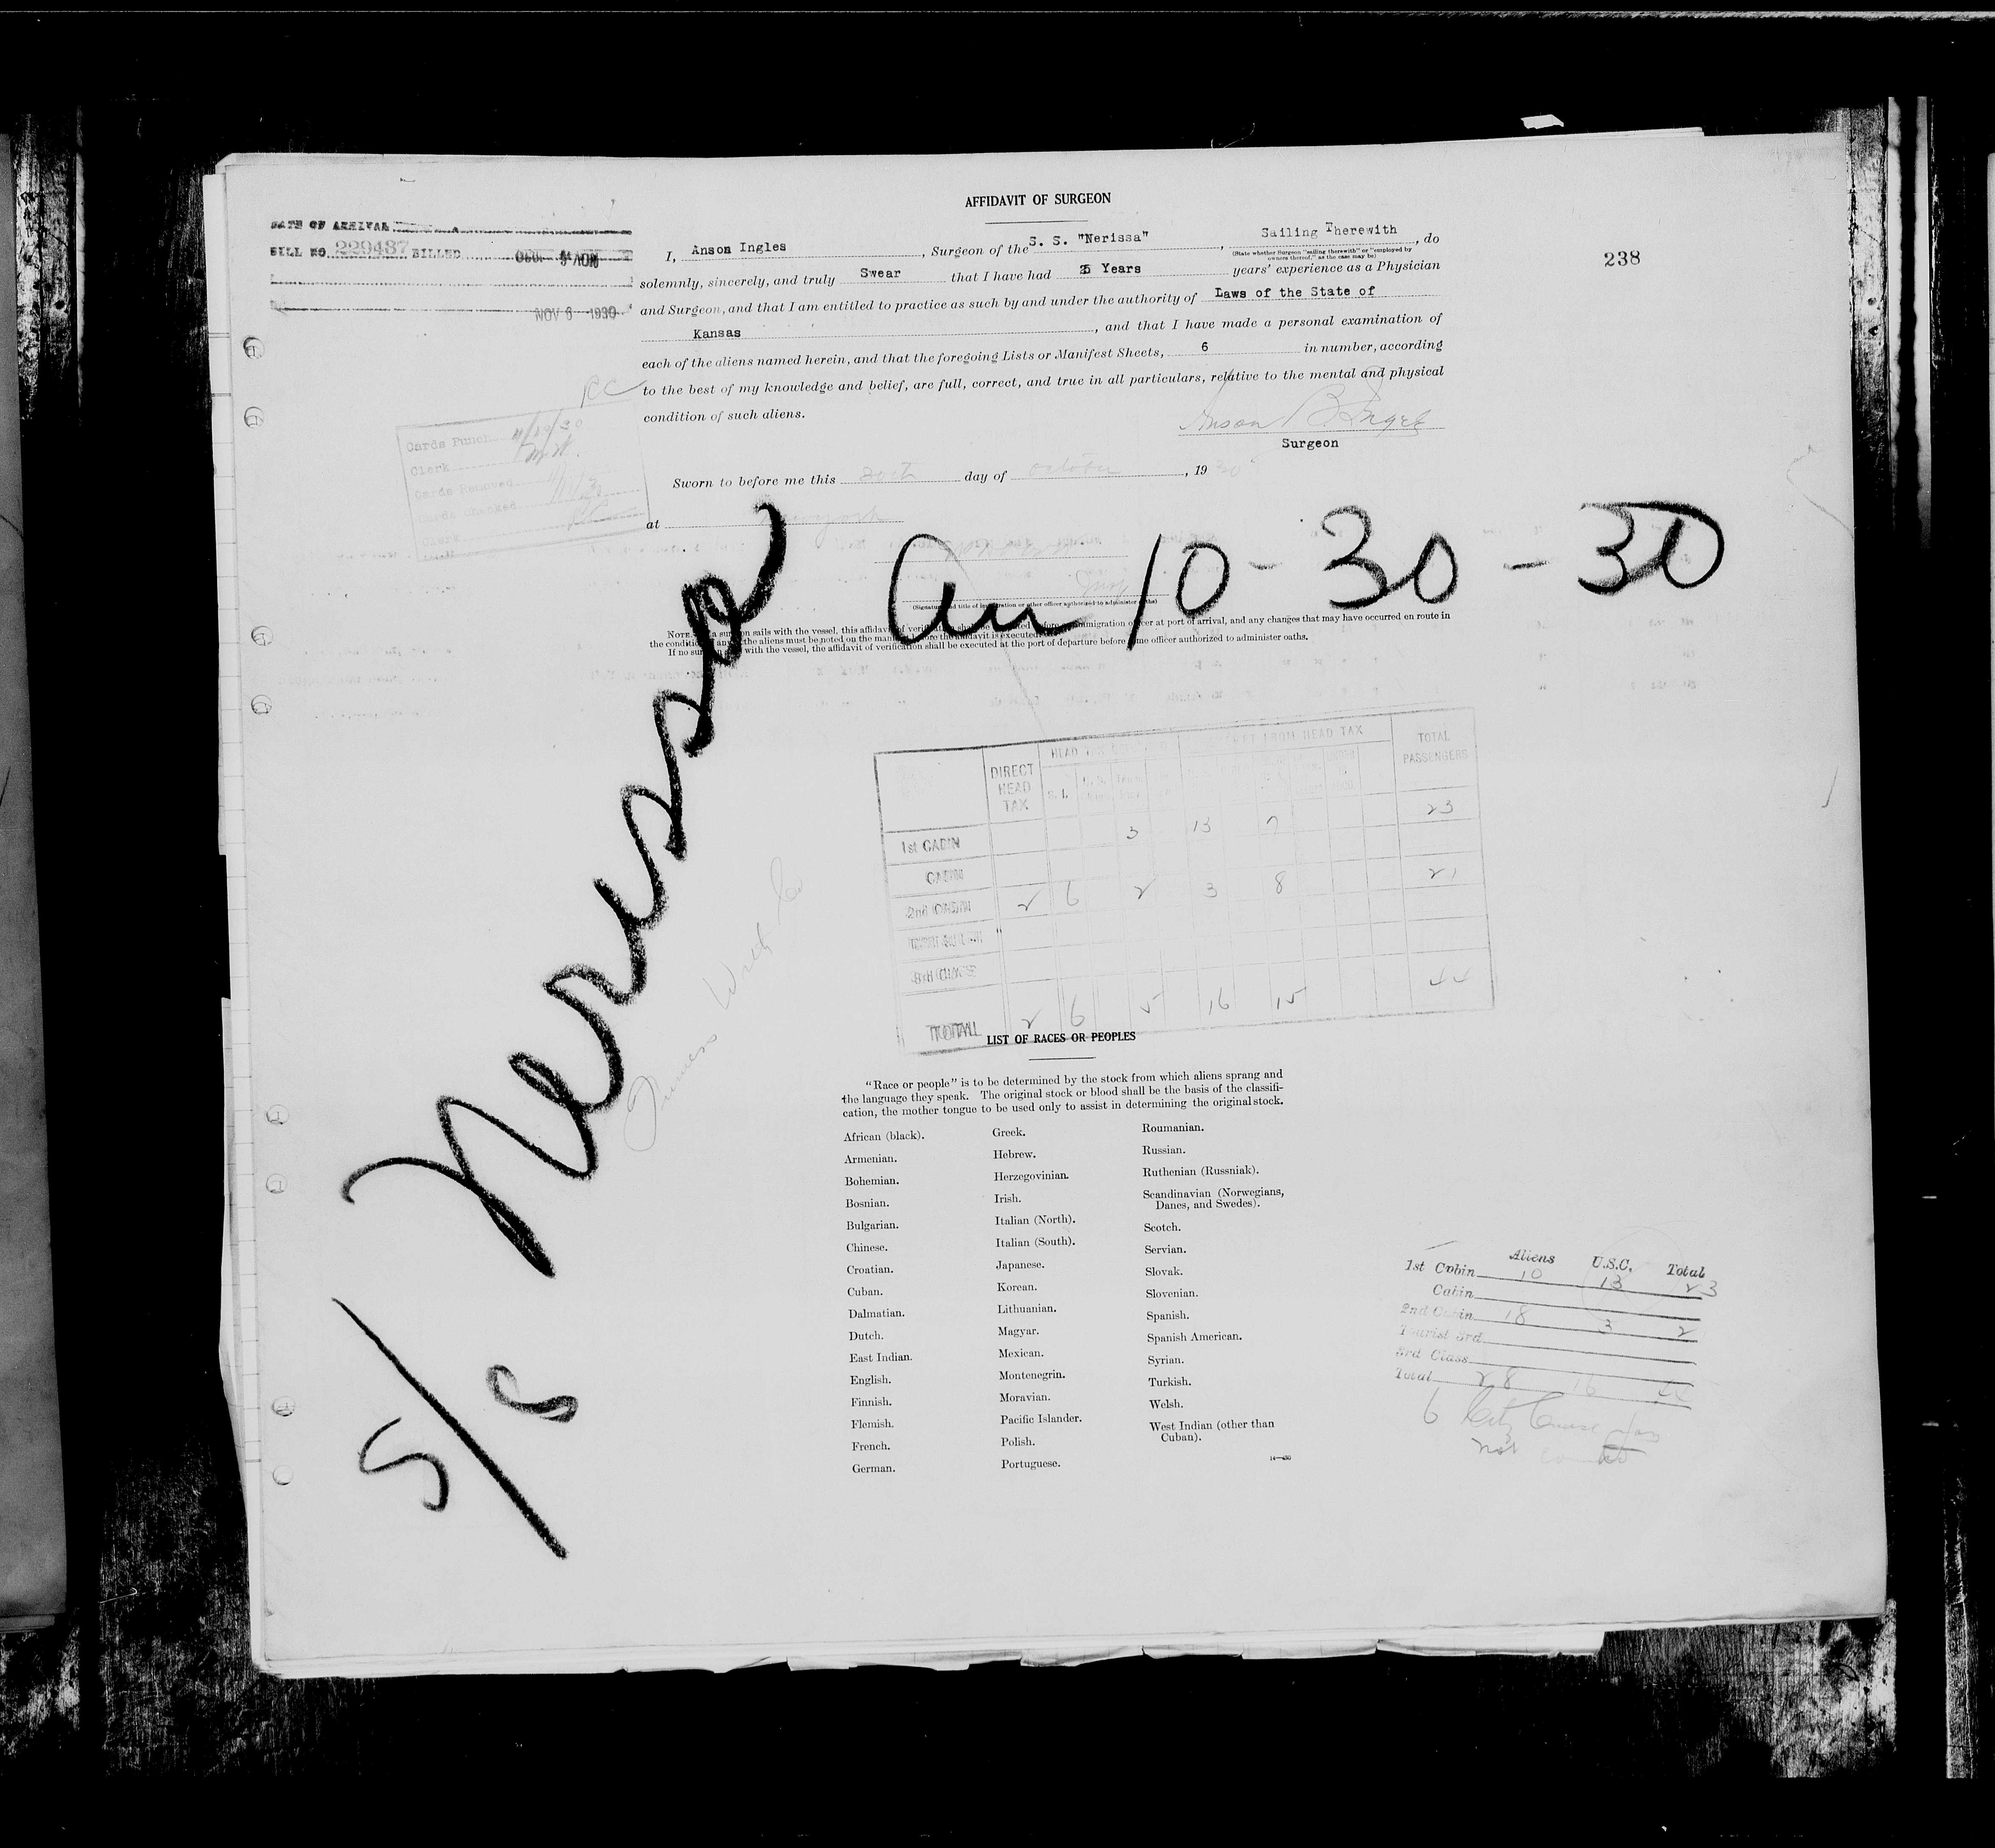 AFFIDAVIT OF SURGEON
DATE OF ARRIVAL
BILL NO. 229437 BILLED
NOV 6 - 1930
238
I, Anson Ingles, Surgeon of the S. S. "Nerissa", Sailing Therewith, do
(State whether Surgeon "sailing therewith" or "employed by
owners thereof," as the case may be)
solemnly, sincerely, and truly Swear that I have had Years years' experience as a Physician
and Surgeon, and that I am entitled to practice as such by and under the authority of Laws of the State of
Kansas, and that I have made a personal examination of
each of the aliens named herein, and that the foregoing Lists or Manifest Sheets, 6 in number, according
to the best of my knowledge and belief, are full, correct, and true in all particulars, relative to the mental and physical
condition of such aliens.
RC
Cards Punch
Clerk
Cards Removed
Cards Checked
Clerk
Anson B. Ingels
Surgeon
Sworn to before me this 30th day of October, 1930
at New York
Nerissa
Arr 10-30-30
(Signature and title of immigration or other officer authorized to administer oaths)
NOTE. a surgeon sails with the vessel, this affidavit of verification shall be immigration officer at port of arrival, and any changes that may have occurred en route in
the condition any the aliens must be noted on the before the affidavit is executed.
If no surgeon with the vessel, the affidavit of verification shall be executed at the port of departure before some officer authorized to administer oaths.
DIRECT HEAD TAX
HEAD TAX
EXEMPT FROM HEAD TAX
TOTAL PASSENGERS
1st CABIN 3 13 7 23
CABIN
2nd CABIN 2 6 2 3 8 21
3rd CLASS
TOTAL 2 6 5 16 15 44
Furness
5/8
LIST OF RACES OR PEOPLES
"Race or people" is to be determined by the stock from which aliens sprang and
the language they speak. The original stock or blood shall be the basis of the classifi-
cation, the mother tongue to be used only to assist in determining the original stock.
African (black).
Armenian.
Bohemian.
Bosnian.
Bulgarian.
Chinese.
Croatian.
Cuban.
Dalmatian.
Dutch.
East Indian.
English.
Finnish.
Flemish.
French.
German.
Greek.
Hebrew.
Herzegovinian.
Irish.
Italian (North).
Italian (South).
Japanese.
Korean.
Lithuanian.
Magyar.
Mexican.
Montenegrin.
Moravian.
Pacific Islander.
Polish.
Portuguese.
Roumanian.
Russian.
Ruthenian (Russniak).
Scandinavian (Norwegians,
Danes, and Swedes).
Scotch.
Servian.
Slovak.
Slovenian.
Spanish.
Spanish American.
Syrian.
Turkish.
Welsh.
West Indian (other than
Cuban).
Aliens U.S.C. Total
1st Cabin 10 13 23
Cabin
2nd Cabin 18 3 2
Tourist 3rd
3rd Class
Total 28 16 44
6
not